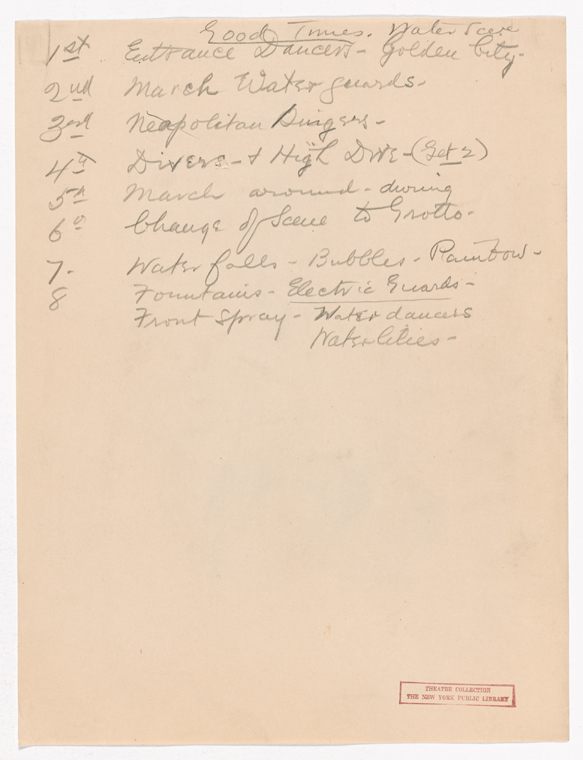 Good Times. Water Scene
1st Entrance Dancers - Golden City -
2nd March Water guards -
3rd Neapolitan Singers -
4th Divers - + High Dive - (Get 2)
5th March around - during
6th Change of Scene to Grotto -
7 - Water falls - Bubbles - Rainbow -
8 Fountains - Electric Guards -
Front Spray - Water dancers
Water lilies -
THEATRE COLLECTION
THE NEW YORK PUBLIC LIBRARY